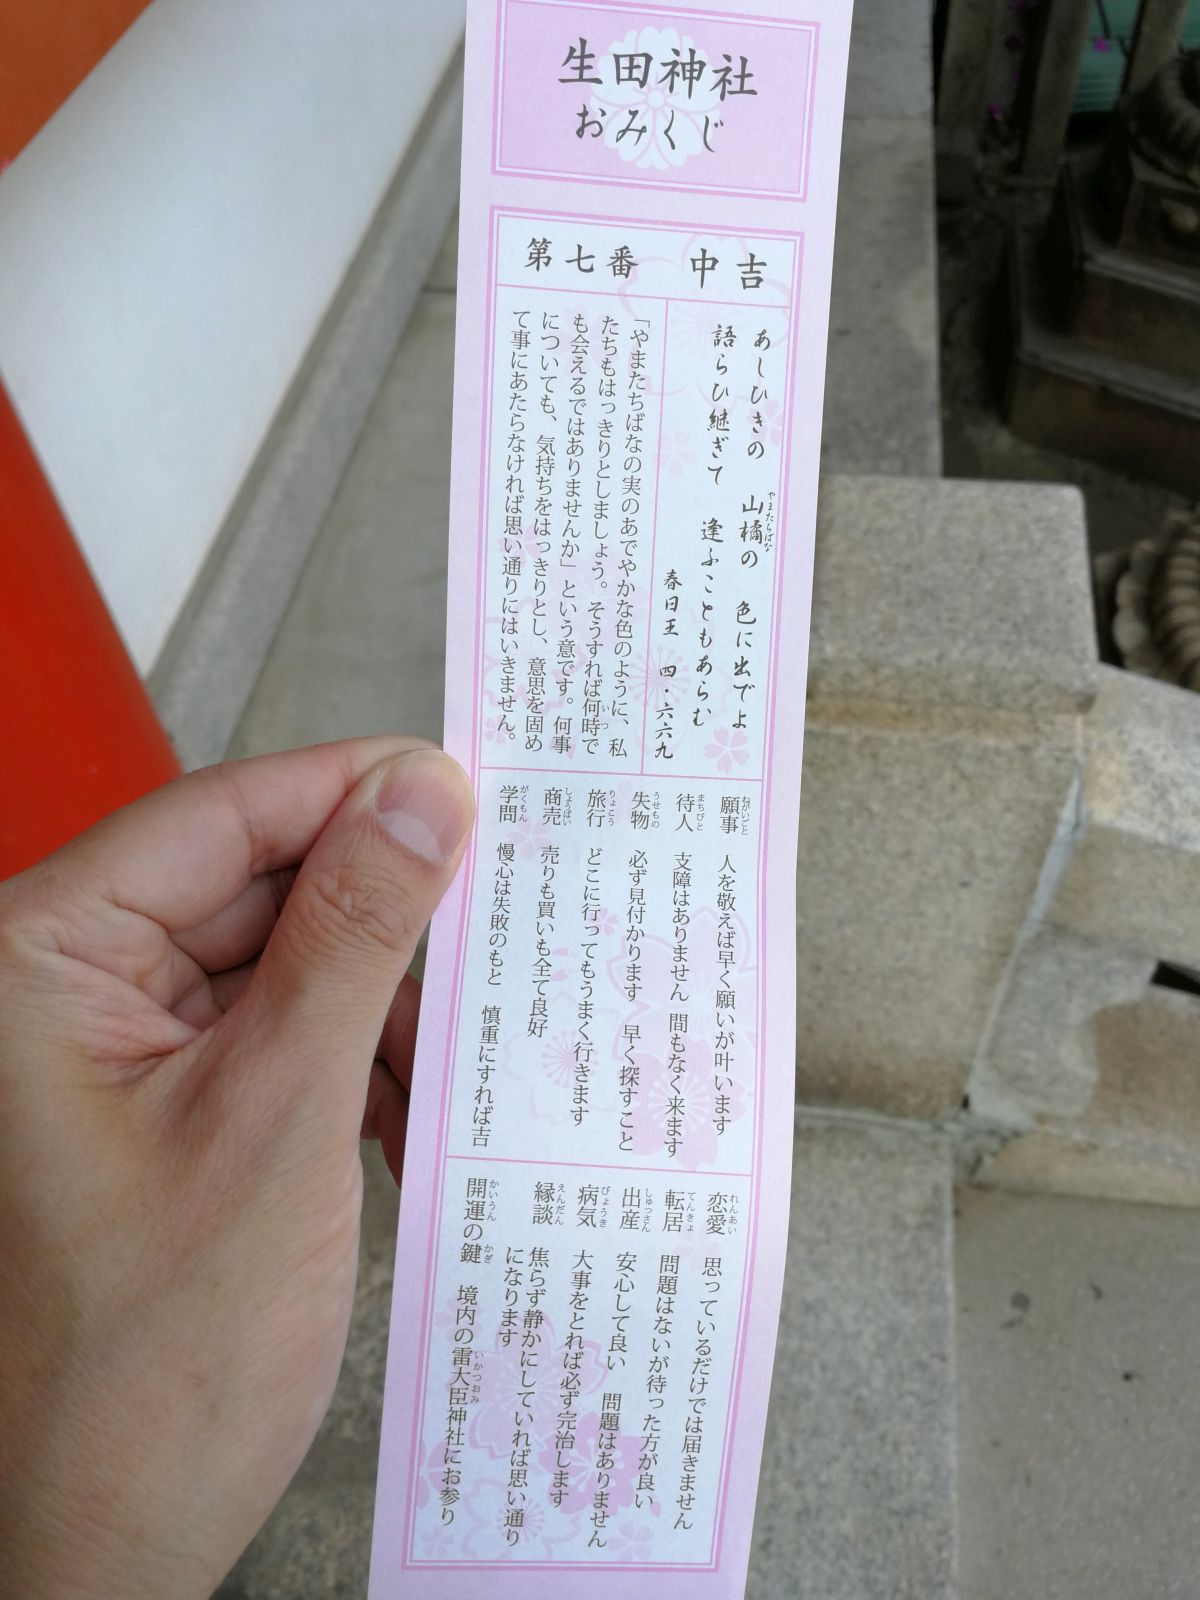 生田神社
おみくじ
第七番 中吉
あしひきの 山橘の 色に出でよ
やまたちばな
語らひ継ぎて 逢ふこともあらむ
春日王 四・六六九
「やまたちばなの実のあでやかな色のように、私
たちもはっきりとしましょう。そうすれば何時で
いつ
も会えるではありませんか」という意です。何事
についても、気持ちをはっきりとし、意思を固め
て事にあたらなければ思い通りにはいきません。
願事 人を敬えば早く願いが叶います
ねがいごと
待人 支障はありません 間もなく来ます
まちびと
失物 必ず見付かります 早く探すこと
うせもの
旅行 どこに行ってもうまく行きます
りょこう
商売 売りも買いも全て良好
しょうばい
学問 慢心は失敗のもと 慎重にすれば吉
がくもん
恋愛 思っているだけでは届きません
れんあい
転居 問題はないが待った方が良い
てんきょ
出産 安心して良い 問題はありません
しゅっさん
病気 大事をとれば必ず完治します
びょうき
縁談 焦らず静かにしていれば思い通り
えんだん
になります
開運の鍵 境内の雷大臣神社にお参り
かいうん かぎ いかつおみ